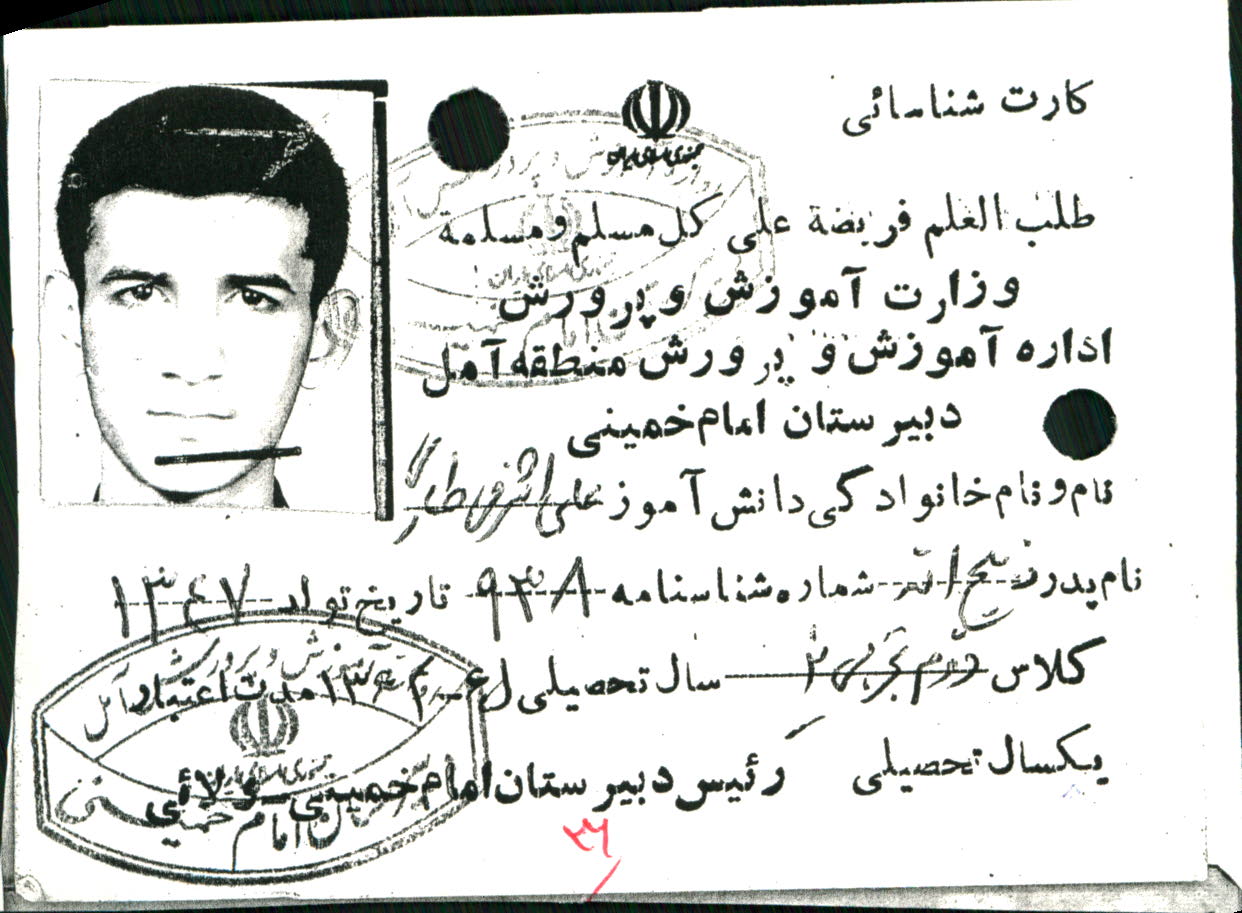 کارت شناسائی
جمهوری اسلامی ایران
طلب العلم فریضة علی کل مسلم و مسلمة
وزارت آموزش و پرورش
اداره آموزش و پرورش منطقه آمل
دبیرستان امام خمینی
نام و نام خانوادگی دانش آموز علی اشرف
نام پدر شماره شناسنامه ۹۳۸ تاریخ تولد ۱۳۴۷
کلاس دوم تجربی ۲ سال تحصیلی مدت اعتبار
یکسال تحصیلی رئیس دبیرستان امام خمینی ولائی